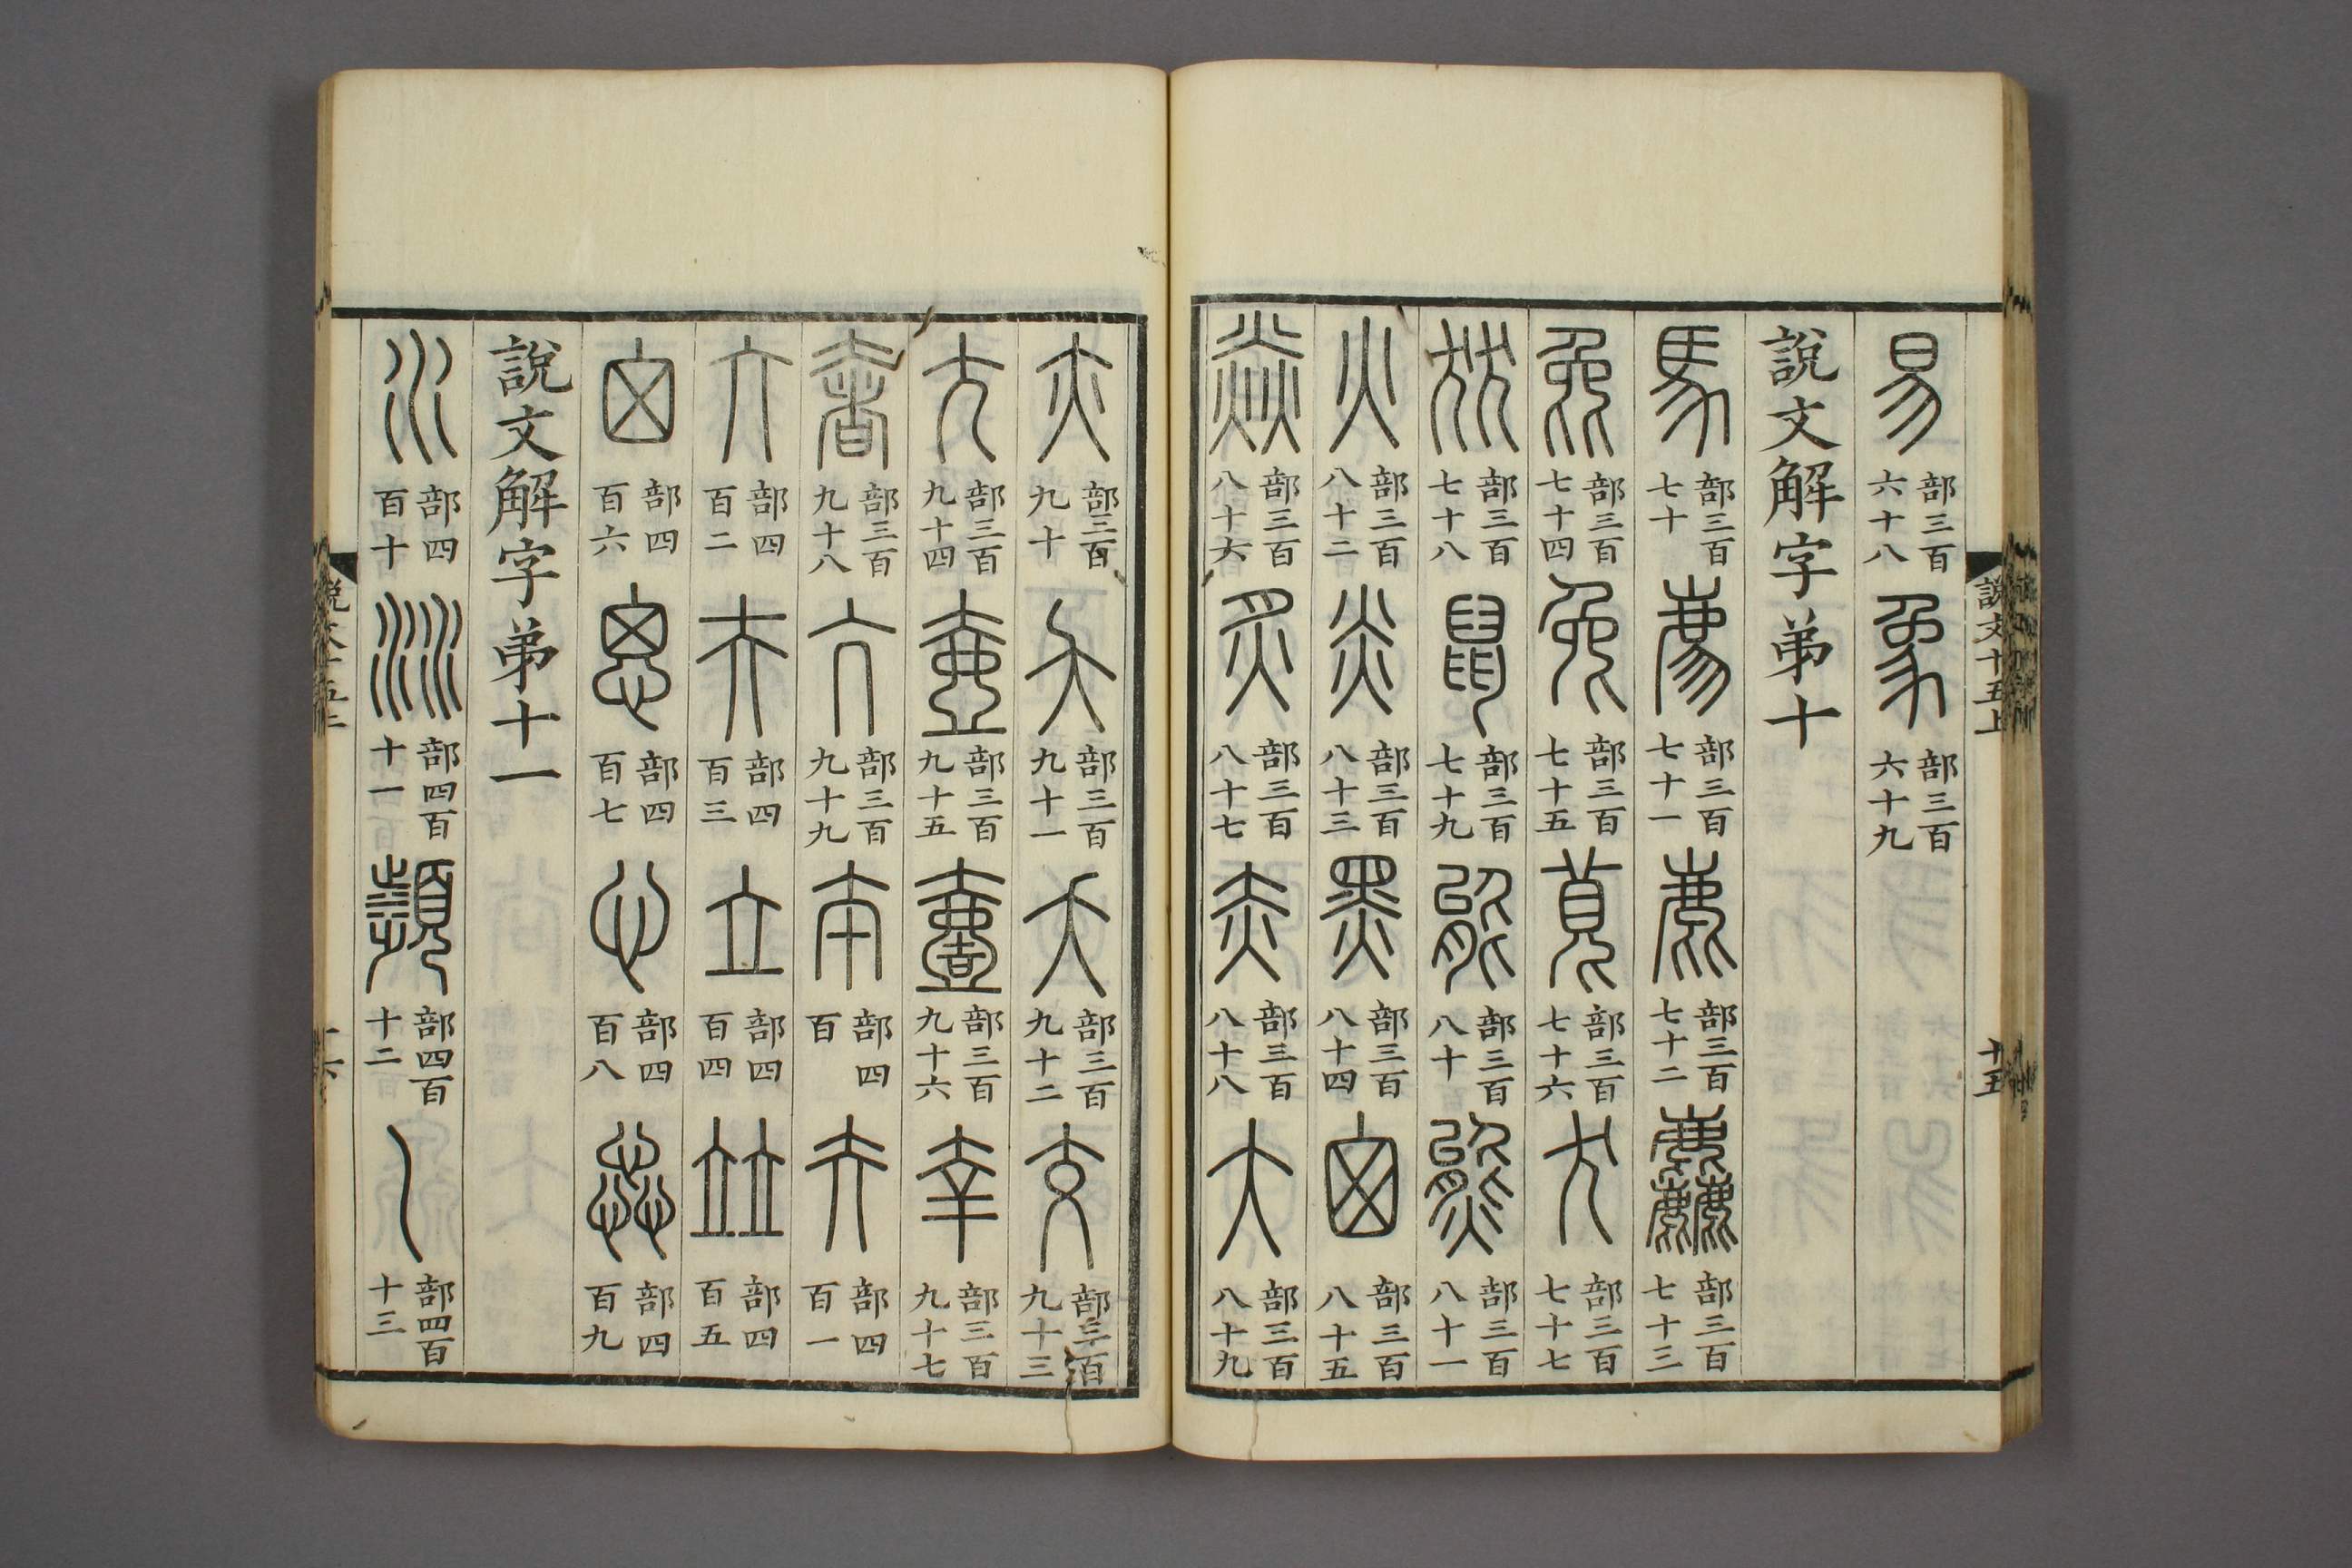 說文十五上 十五
易 部三百六十八 象 部三百六十九
說文解字弟十
馬 部三百七十 廌 部三百七十一 鹿 部三百七十二 麤 部三百七十三
㲋 部三百七十四 兔 部三百七十五 萈 部三百七十六 犬 部三百七十七
㹜 部三百七十八 鼠 部三百七十九 能 部三百八十 熊 部三百八十一
火 部三百八十二 炎 部三百八十三 黑 部三百八十四 囱 部三百八十五
焱 部三百八十六 炙 部三百八十七 赤 部三百八十八 大 部三百八十九
亦 部三百九十 夨 部三百九十一 夭 部三百九十二 交 部三百九十三
尣 部三百九十四 壺 部三百九十五 壹 部三百九十六 㚔 部三百九十七
奢 部三百九十八 亢 部三百九十九 夲 部四百 夰 部四百一
亣 部四百二 夫 部四百三 立 部四百四 竝 部四百五
囟 部四百六 思 部四百七 心 部四百八 惢 部四百九
說文解字弟十一
水 部四百十 沝 部四百十一 瀕 部四百十二 𡿨 部四百十三
說文十五上 十六